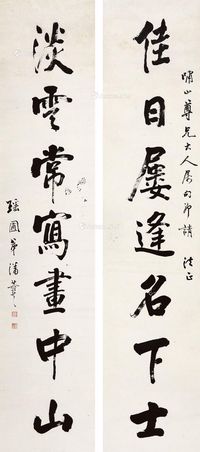 佳日屡逢名下士
嘯山尊兄大人屬句即請 法正
淡雲常寫畫中山
瑤圃弟潘